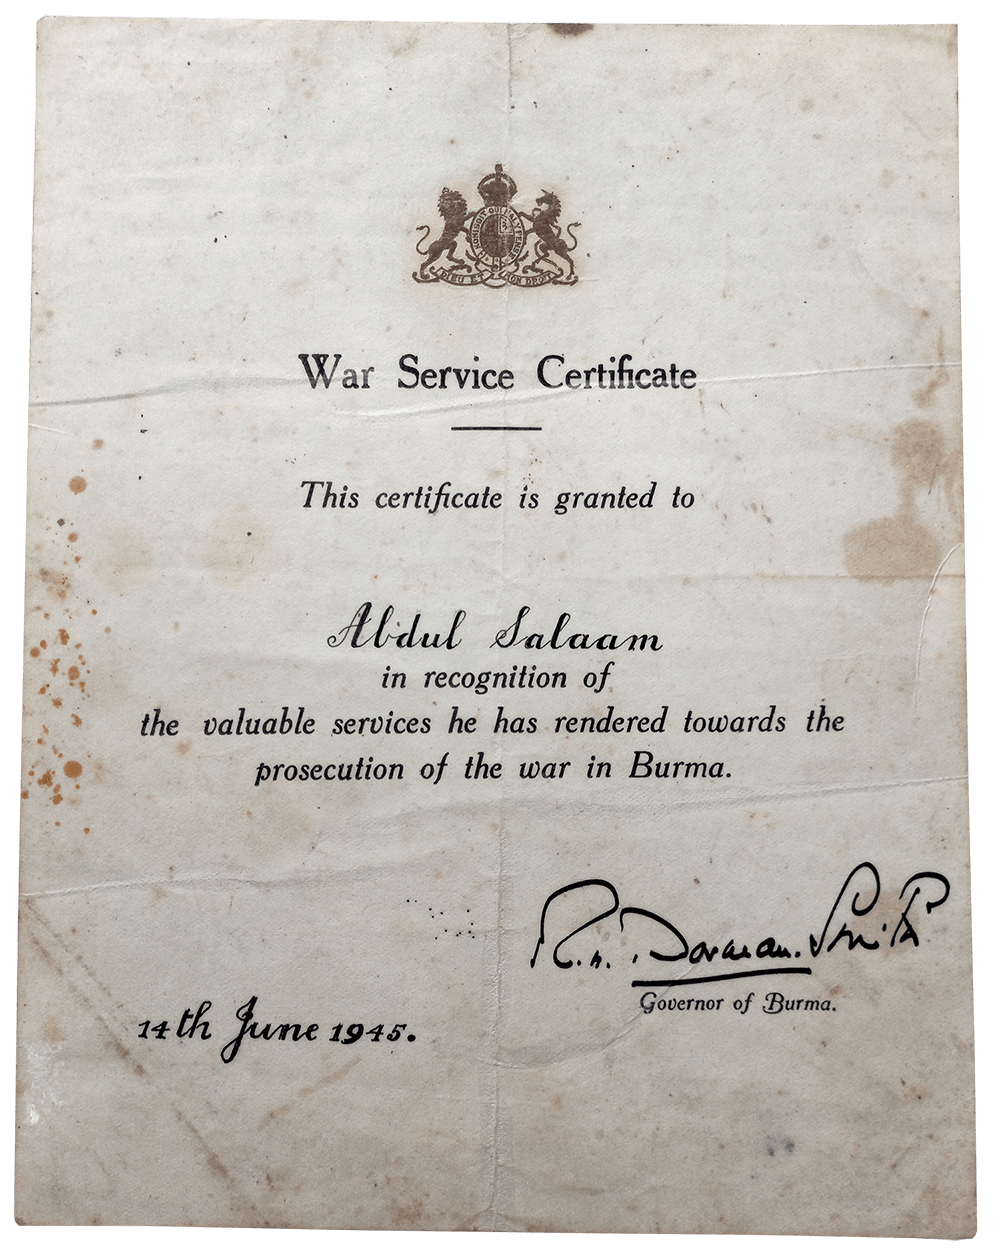 HONI SOIT QUI MAL Y PENSE
DIEU ET MON DROIT
War Service Certificate
This certificate is granted to
Abdul Salaam
in recognition of
the valuable services he has rendered towards the
prosecution of the war in Burma.
R. H. Dorman-Smith
Governor of Burma.
14th June 1945.